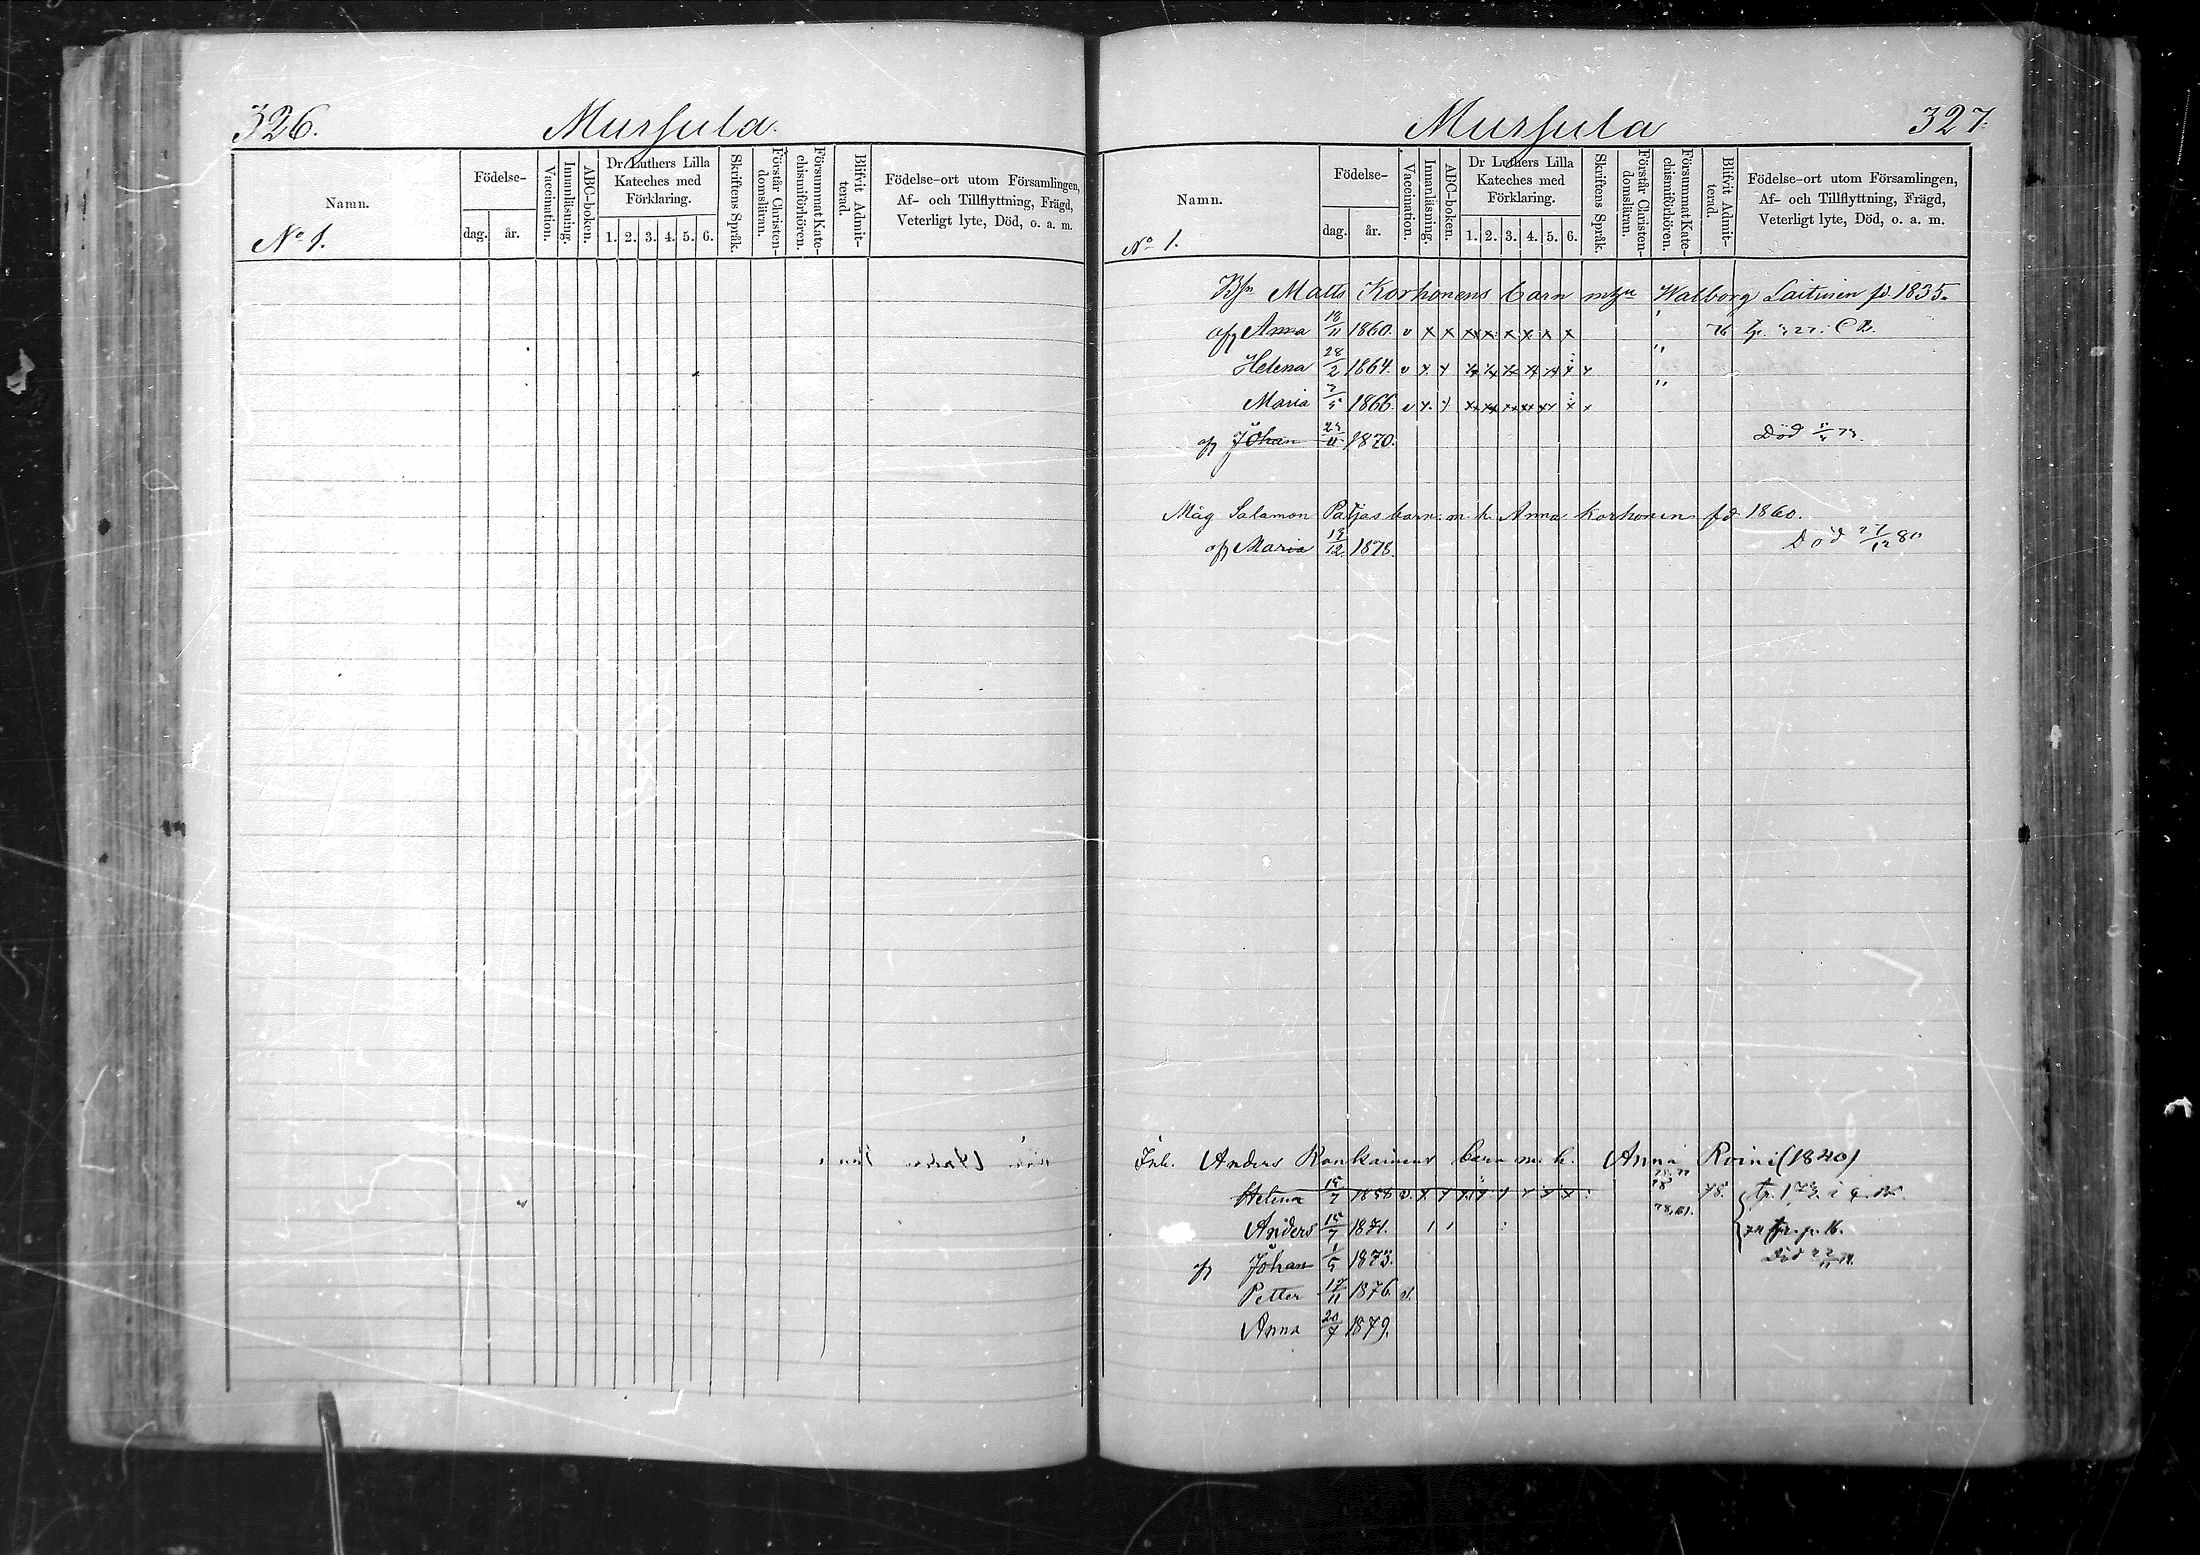 326. Mursula.
Namn. Födelse- dag. år. Vaccination. Innanläsning. ABC-boken. Dr Luthers Lilla Kateches med Förklaring. 1. 2. 3. 4. 5. 6. Skriftens Språk. Förstår Christendomsläran. Försummat Katechismiförhören. Blifvit Admitterad. Födelse-ort utom Församlingen, Af- och Tillflyttning, Frägd, Veterligt lyte, Död, o. a. m.
No 1.
Mursula 327.
Namn. Födelse- dag. år. Vaccination. Innanläsning. ABC-boken. Dr Luthers Lilla Kateches med Förklaring. 1. 2. 3. 4. 5. 6. Skriftens Språk. Förstår Christendomsläran. Försummat Katechismiförhören. Blifvit Admitterad. Födelse-ort utom Församlingen, Af- och Tillflyttning, Frägd, Veterligt lyte, Död, o. a. m.
No 1.
Matts Korhonens barn Walborg Laitinen fd 1835.
Anna 18/11 1860. v x x x x x x x x 76
Helena 28/2 1864. v x x x x x x x x x
Maria 1866. v x x x x x x x x x
Johan 1870. Död
Måg Salamon Patjas barn m. h. Anna Korhonen fd 1860.
Maria 19/12 1878. Död 27/12 80
Inh. Anders Ronkainens barn m. h. Anna Roini (1840)
Helena 15/7 1858 v. 75.
Anders 15/7 1871.
Johan 1873. Död
Petter 17/11 1876 v.
Anna 20/7 1879.